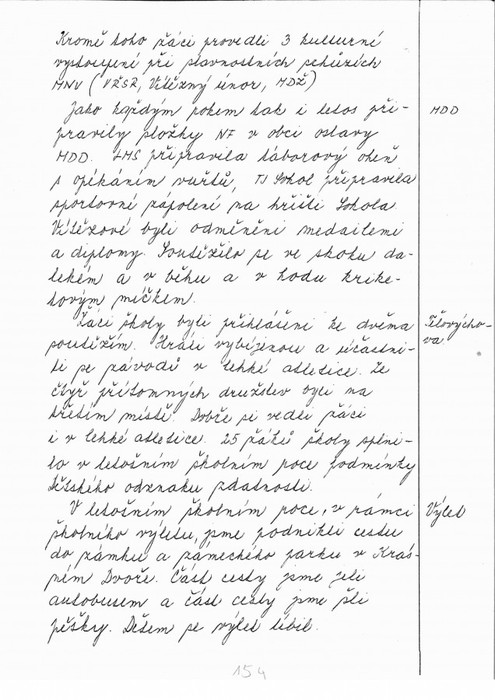 Kromě toho žáci provedli 3 kulturní
vystoupení při slavnostních schůzích
MNV (VŘSR, Vítězný únor, MDŽ)
Jako každým rokem tak i letos při-
pravily složky NF v obci oslavy
MDD
MDD. LMS připravila táborový oheň
s opékáním vuřtů, TJ Sokol připravila
sportovní zápolení na hřišti Sokola.
Vítězové byli odměněni medailemi
a diplomy. Soutěžilo se ve skoku da-
lekém a v běhu a v hodu krike-
tovým míčkem.
Žáci školy byli přihlášeni ke dvěma
Tělovýcho-
va
soutěžím. Hráli vybíjenou a účastni-
li se závodů v lehké atletice. Ze
čtyř přítomných družstev byli na
třetím místě. Dobře si vedli žáci
i v lehké atletice. 25 žáků školy splni-
lo v letošním školním roce podmínky
dětského odznaku zdatnosti.
V letošním školním roce, v rámci
Výlet
školního výletu, jsme podnikli cestu
do zámku a zámeckého parku v Krás-
ném Dvoře. Část cesty jsme jeli
autobusem a část cesty jsme šli
pěšky. Dětem se výlet líbil.
154